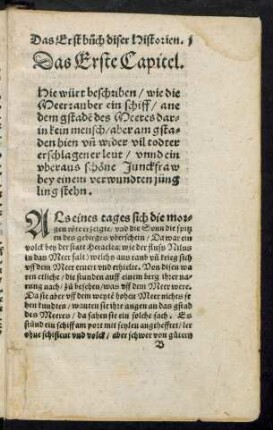 Das Erst bůch diser Historien. j
Das Erste Capitel.
Hie würt beschriben / wie die
Meerrauber ein schiff / ane
dem gstadē des Meeres dar-
in kein mensch / aber am gsta-
den hien vñ wider vil todter
erschlagener leut / vnnd ein
vberaus schöne Junckfraw
bey einem verwundten jüng
ling stehn.
ALs eines tages sich die mor-
gen röte erzeigte / vnd die Sonn die spitz
en des gebirges vberschein / Da war ein
volck bey der statt Heraclea: wie der fluß Nilus
in das Meer falt) welchs aus raub vñ krieg sich
vff dem Meer enert vnd erhielte. Von disen wa
ren etliche / die stunden auff einem berg ihrer na
rung nach / zů besehen / was vff dem Meer were.
Da sie aber vff dem weyte hohen Meer nichts se
hen kundten / wanten sie ihr augen an das gstad
des Meeres / da sahen sie ein solche sach. Es
stůnd ein schiff am port mit seylen angehefftet / ler
ohne schiffleut vnd volck / aber schwer von gůtern
B